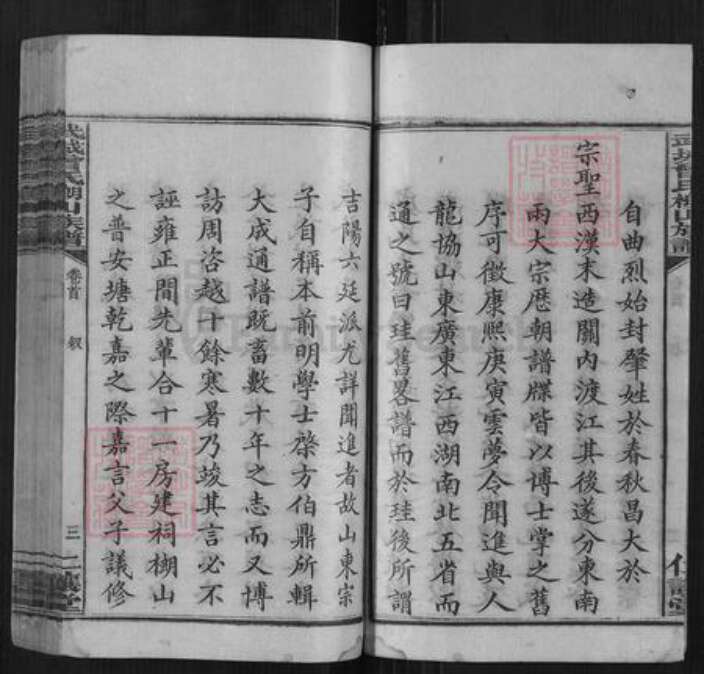 自曲烈始封肇姓於春秋昌大於
宗聖西漢末造關內渡江其後遂分東南
兩大宗歷朝譜牒皆以博士掌之舊
序可徵康熙庚寅雲夢令聞進與人
龍協山東廣東江西湖南北五省而
通之號曰珪舊畧譜而於珪後所謂
吉陽六延派尤詳聞進者故山東宗
子自稱本前明學士棨方伯鼎所輯
大成通譜既畜數十年之志而又博
訪周咨越十餘寒暑乃竣其言必不
誣雍正間先輩合十一房建祠棚山
之普安塘乾嘉之際嘉言父子議修
武城曾氏棚山族譜
卷首
叙
三